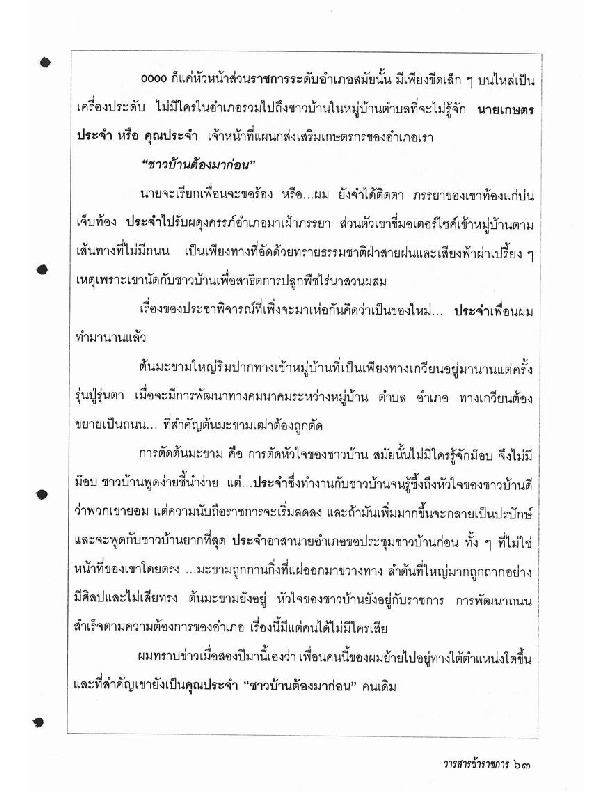 ๐๐๐๐ ก็แค่หัวหน้าส่วนราชการระดับอำเภอสมัยนั้น มีเพียงขีดเล็ก ๆ บนไหล่เป็น
เครื่องประดับ ไม่มีใครในอำเภอรวมไปถึงชาวบ้านในหมู่บ้านตำบลที่จะไม่รู้จัก นายเกษตร
ประจำ หรือ คุณประจำ เจ้าหน้าที่แผนกส่งเสริมเกษตรการของอำเภอเรา
“ชาวบ้านต้องมาก่อน”
นายจะเรียกเพื่อนจะขอร้อง หรือ...ผม ยังจำได้ติดตา ภรรยาของเขาท้องแก่บ่น
เจ็บท้อง ประจำไปรับผดุงครรภ์อำเภอมาเฝ้าภรรยา ส่วนตัวเขาขี่มอเตอร์ไซค์เข้าหมู่บ้านตาม
เส้นทางที่ไม่มีถนน เป็นเพียงทางที่อัดด้วยทรายธรรมชาติฝ่าสายฝนและเสียงฟ้าผ่าเปรี้ยง ๆ
เหตุเพราะเขานัดกับชาวบ้านเพื่อสาธิตการปลูกพืชไร่นาสวนผสม
เรื่องของประชาพิจารณ์ที่เพิ่งจะมาเห่อกันคิดว่าเป็นของใหม่... ประจำเพื่อนผม
ทำมานานแล้ว
ต้นมะขามใหญ่ริมปากทางเข้าหมู่บ้านที่เป็นเพียงทางเกวียนอยู่มานานแต่ครั้ง
รุ่นปู่รุ่นตา เมื่อจะมีการพัฒนาทางคมนาคมระหว่างหมู่บ้าน ตำบล อำเภอ ทางเกวียนต้อง
ขยายเป็นถนน... ที่สำคัญต้นมะขามเฒ่าต้องถูกตัด
การตัดต้นมะขาม คือ การตัดหัวใจของชาวบ้าน สมัยนั้นไม่มีใครรู้จักม็อบ จึงไม่มี
ม็อบ ชาวบ้านพูดง่ายชี้นำง่าย แต่...ประจำซึ่งทำงานกับชาวบ้านจนรู้ซึ้งถึงหัวใจของชาวบ้านดี
ว่าพวกเขายอม แต่ความนับถือราชการจะเริ่มลดลง และถ้ามันเพิ่มมากขึ้นจะกลายเป็นปรปักษ์
และจะพูดกับชาวบ้านยากที่สุด ประจำอาสานายอำเภอขอประชุมชาวบ้านก่อน ทั้ง ๆ ที่ไม่ใช่
หน้าที่ของเขาโดยตรง ...มะขามถูกทานกิ่งที่แผ่ออกมาขวางทาง ลำต้นที่ใหญ่มากถูกถากอย่าง
มีศิลปและไม่เสียทรง ต้นมะขามยังอยู่ หัวใจของชาวบ้านยังอยู่กับราชการ การพัฒนาถนน
สำเร็จตามความต้องการของอำเภอ เรื่องนี้มีแต่คนได้ไม่มีใครเสีย
ผมทราบข่าวเมื่อสองปีมานี้เองว่า เพื่อนคนนี้ของผมย้ายไปอยู่ทางใต้ตำแหน่งโตขึ้น
และที่สำคัญเขายังเป็นคุณประจำ “ชาวบ้านต้องมาก่อน” คนเดิม
วารสารข้าราชการ ๖๓